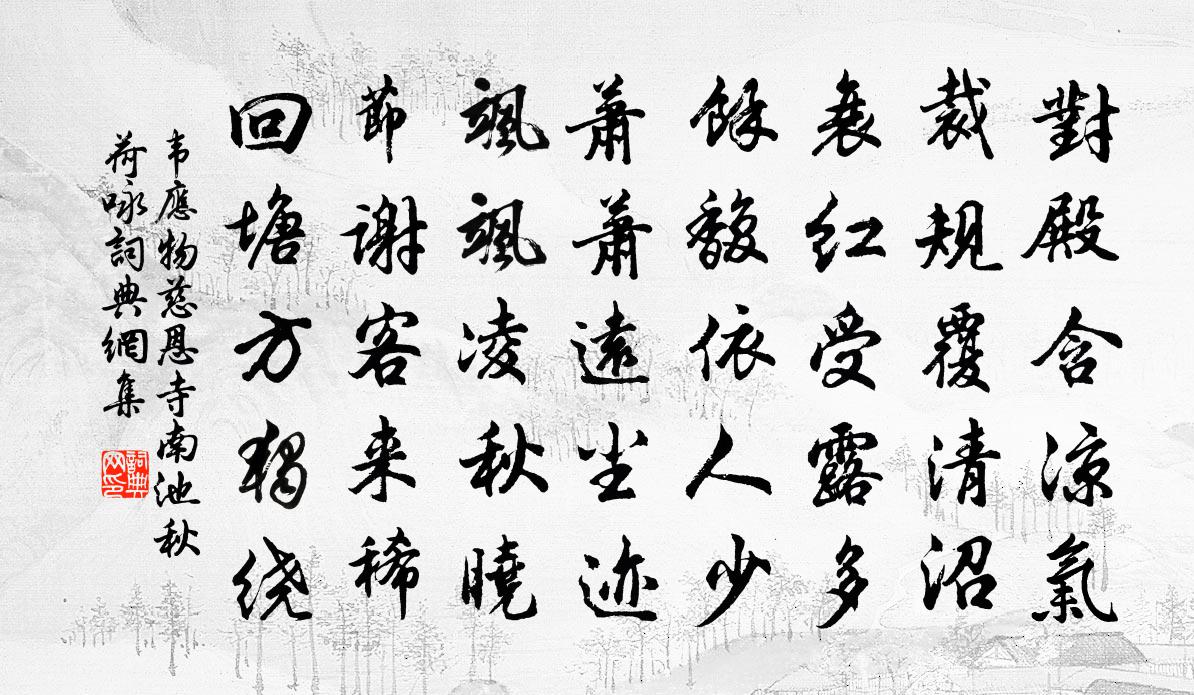 對殿含涼氣
裁規覆清沼
衰紅受露多
餘馥依人少
蕭蕭遠尘迹
颯颯凌秋曉
節謝客来稀
回塘方獨绕
韦應物慈恩寺南池秋
荷咏詞典網集
詞典
网印